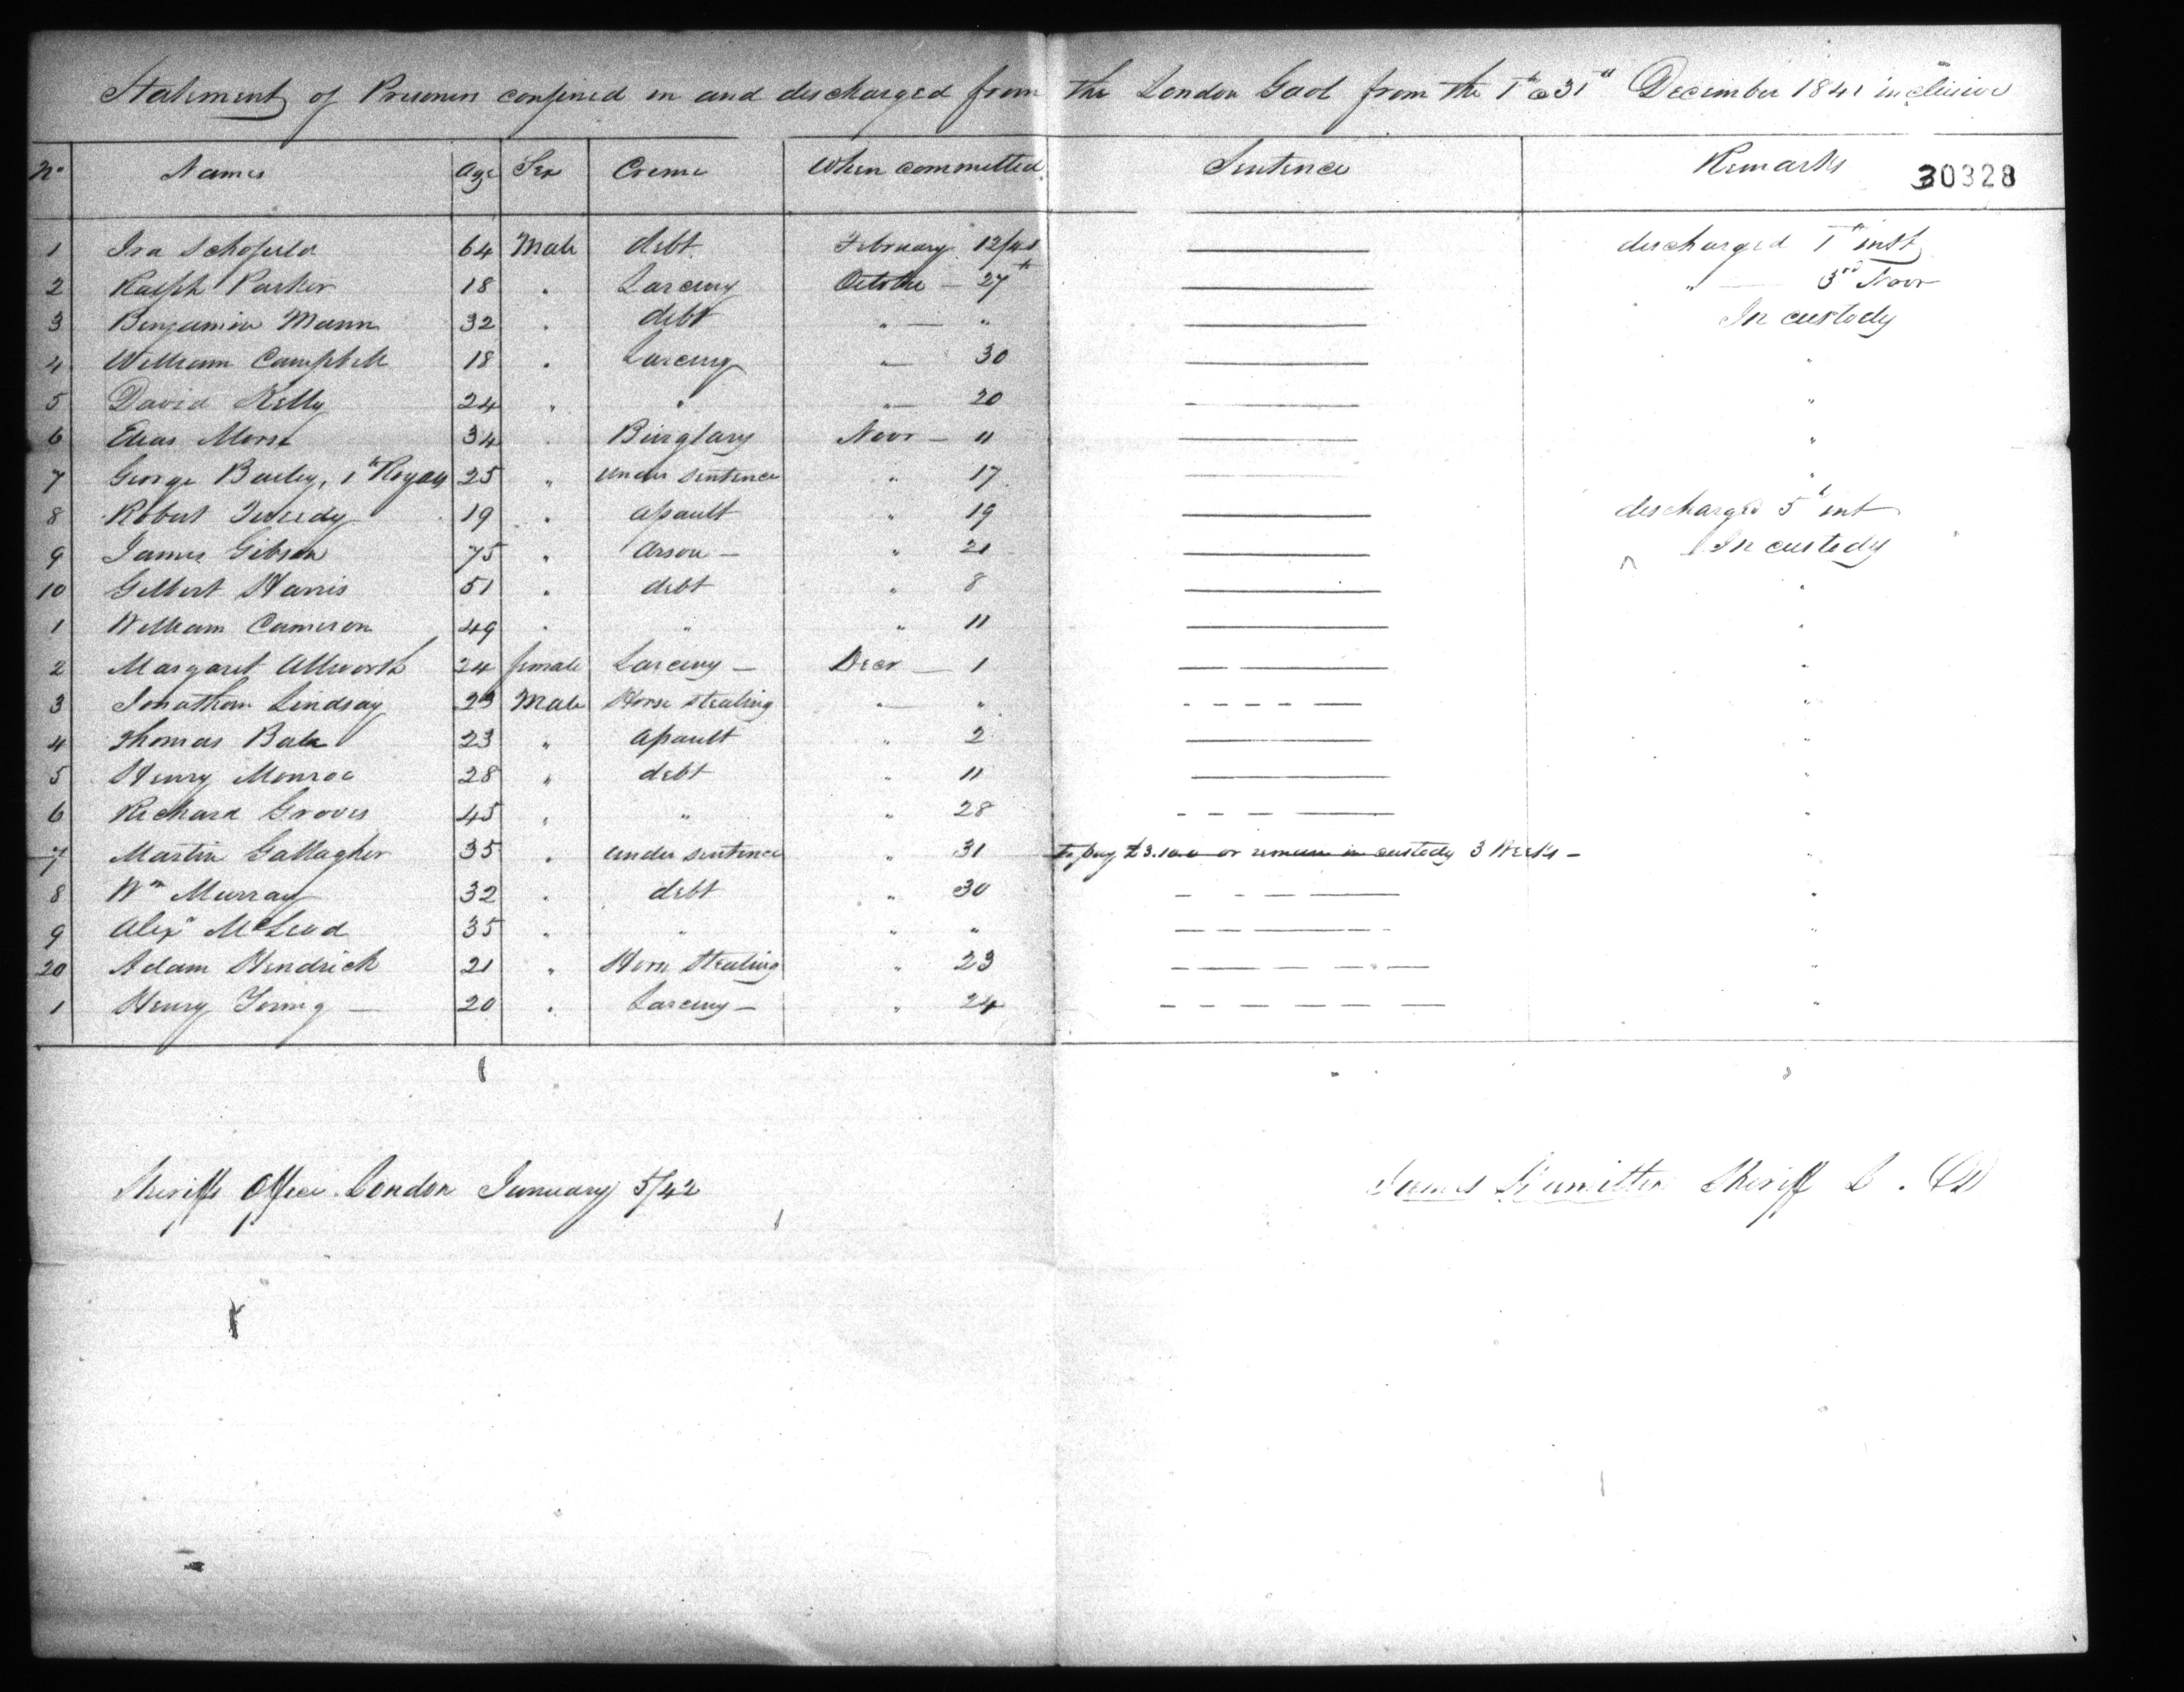 Statement of Prisoners confined in and discharged from the London Gaol from the 1st to 31st December 1841 inclusive
No Names Age Sex Crime When committed Sentence Remarks
30328
1 Ira Schofield 64 Male debt February 12/41 — discharged 1st inst
2 Ralph Parker 18 " Larceny October — 27th — " — 3rd Novr
3 Benjamin Mann 32 " debt " — " — In custody
4 William Campbell 18 " Larceny " — 30 — "
5 David Kelly 24 " " " — 20 — "
6 Elias Morse 34 " Burglary Novr — 11 — "
7 George Bailey, 1st Royals 25 " under sentence " 17 — "
8 Robert Tweedy 19 " assault " 19 — discharged 5th inst
9 James Gibson 75 " Arson — " 21 — In custody
10 Gilbert Harris 51 " debt " 8 — "
1 William Cameron 49 " " " 11 — "
2 Margaret Allworth 24 female Larceny — Decr — 1 — "
3 Jonathan Lindsay 23 Male Horse Stealing " — " — "
4 Thomas Bale 23 " assault " 2 — "
5 Henry Monroe 28 " debt " 11 — "
6 Richard Groves 45 " " " 28 — "
7 Martin Gallagher 35 " under sentence " 31 to pay £3.10.0 or remain in custody 3 Weeks — "
8 Wm Murray 32 " debt " 30 — "
9 Alexr McLeod 35 " " " " — "
20 Adam Hendrick 21 " Horse Stealing " 23 — "
1 Henry Young — 20 " Larceny — " 24 — "
Sheriffs Office London January 5/42
James Hamilton Sheriff L. D